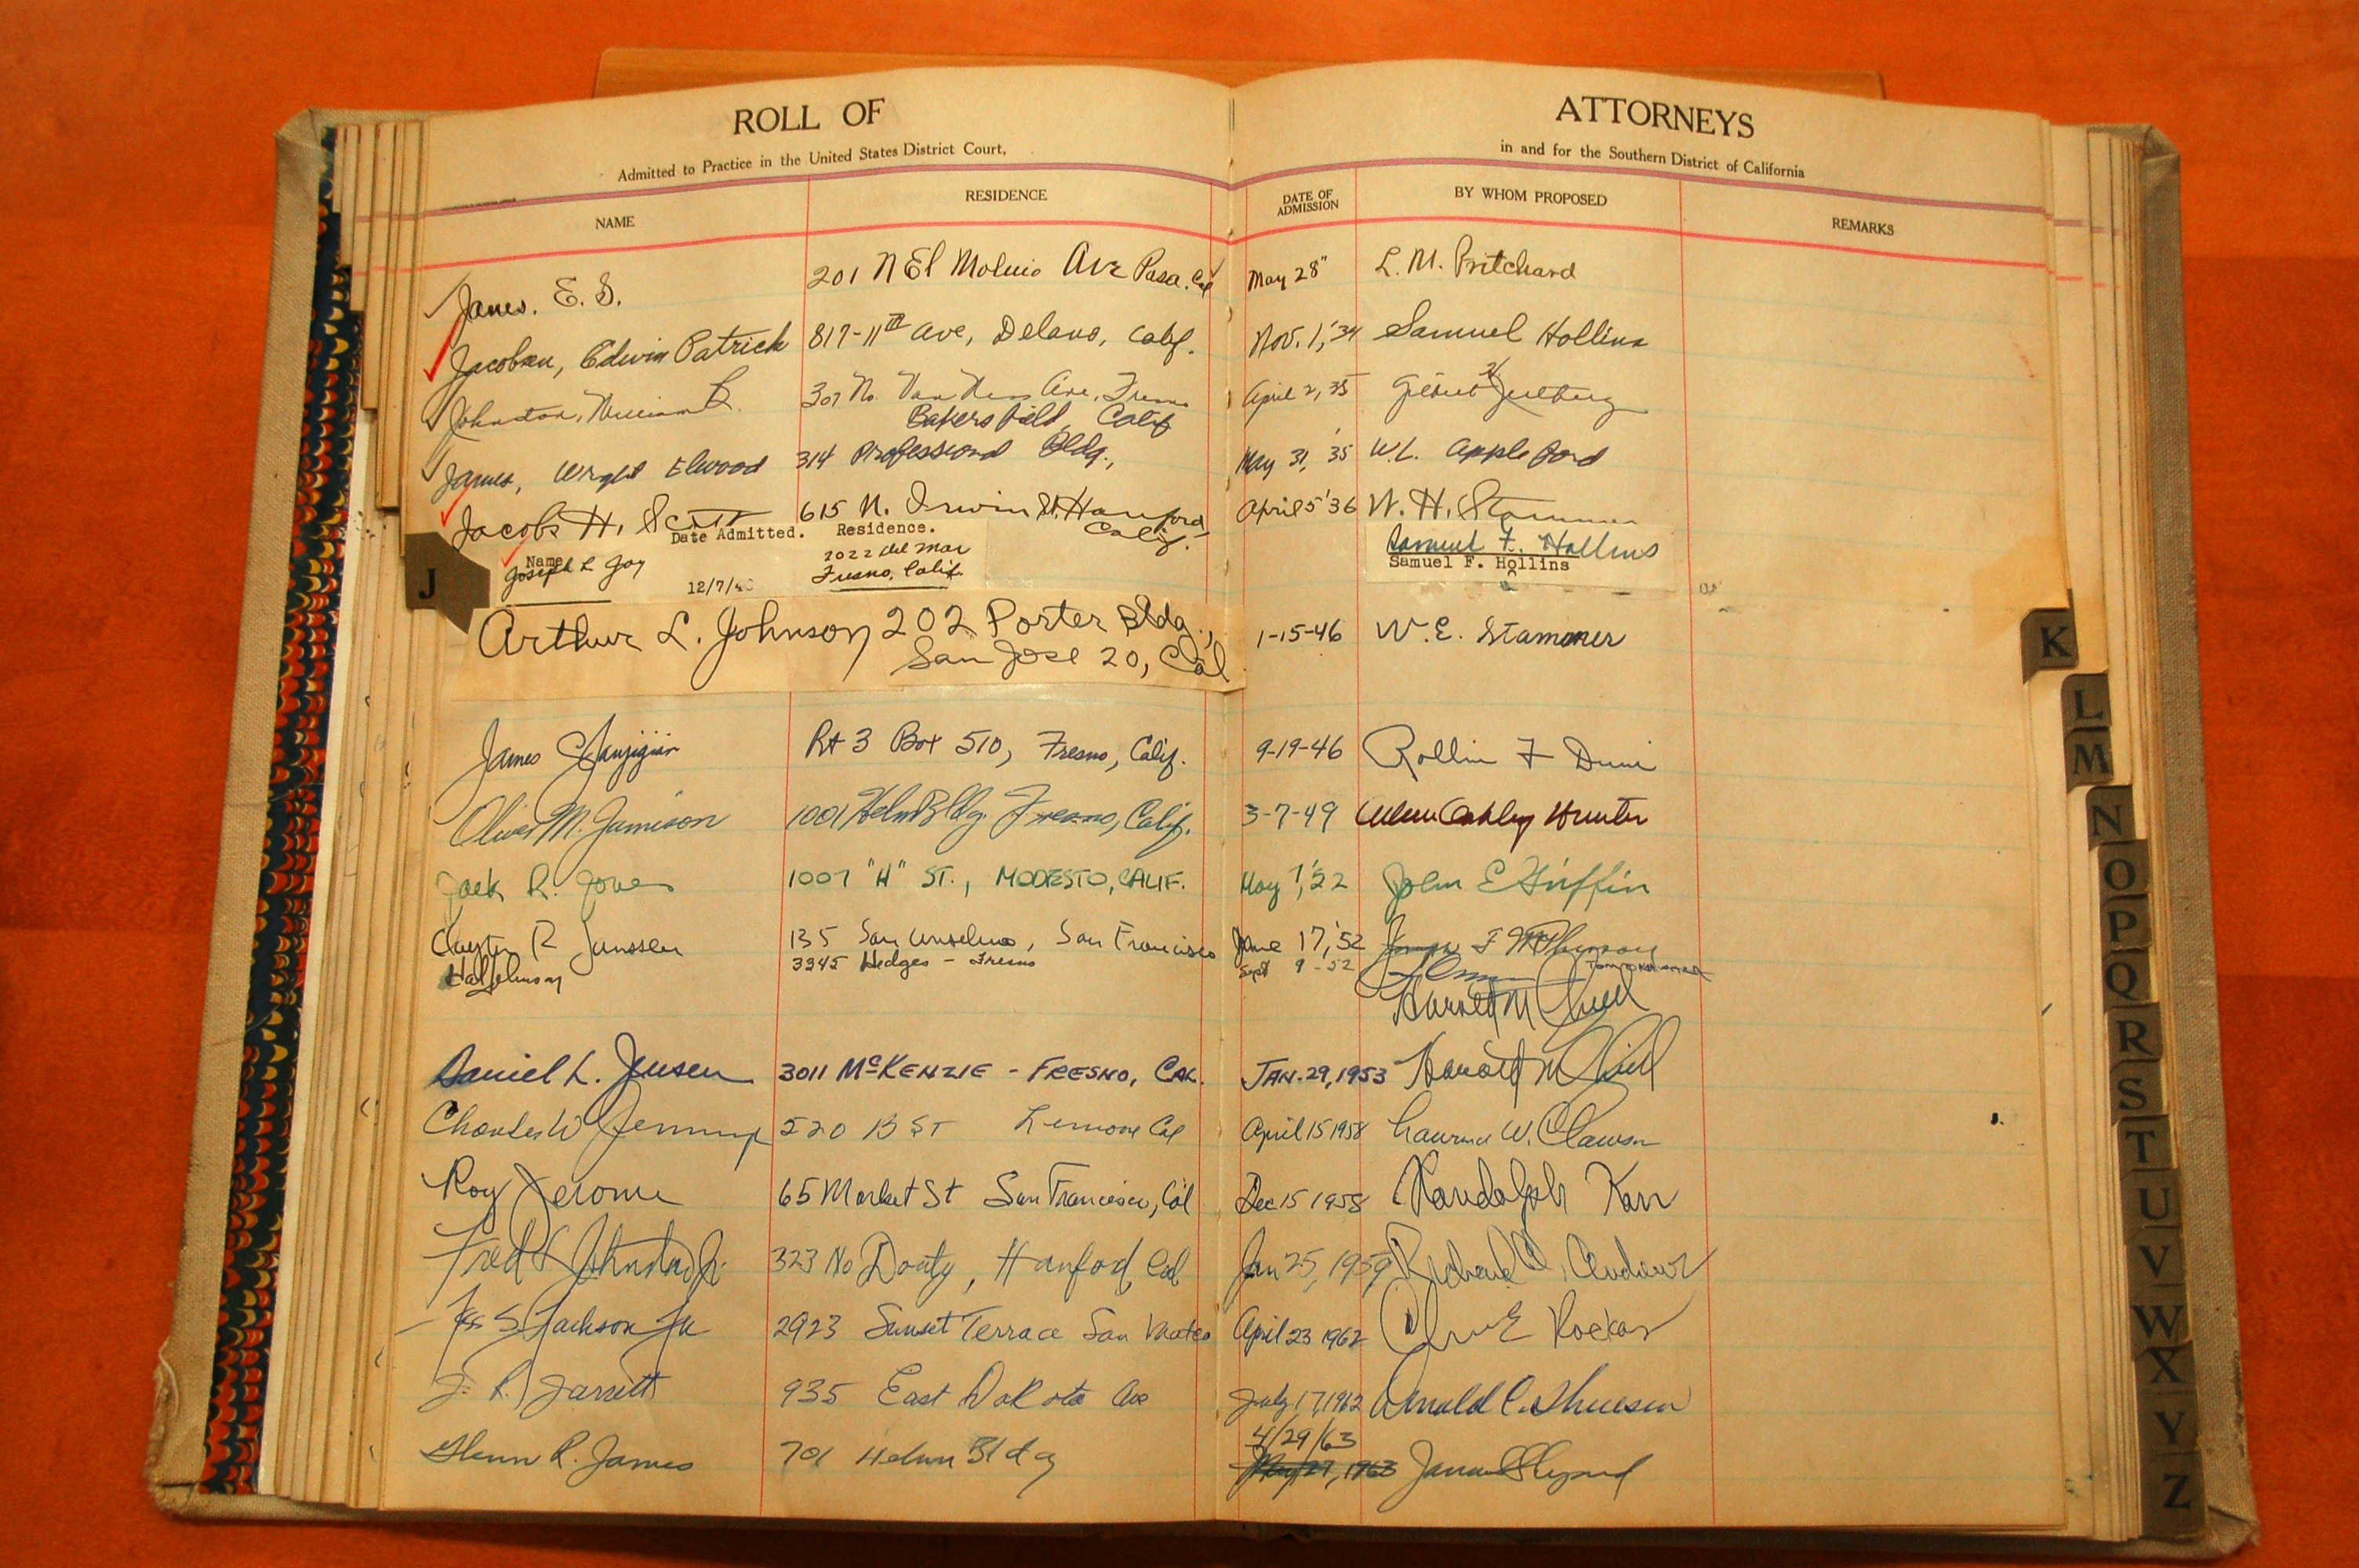 ROLL OF ATTORNEYS
Admitted to Practice in the United States District Court, in and for the Southern District of California
NAME RESIDENCE DATE OF ADMISSION BY WHOM PROPOSED REMARKS
Janes. E. S. 201 N El Molino Ave Pasa. Cal May 28" L. M. Pritchard
Jacobsen, Edwin Patrick 817-11th Ave, Delano, Calif. Nov. 1, '34 Samuel Hollins
Johnston, William L. 307 No. Van Ness Ave, Fresno April 2, 35 Gilbert
Bakersfield, Calif
James, Wright Elwood 314 Professional Bldg., May 31, '35 W.L. Appleford
Jacobs H. Scott 615 N. Irwin St. Hanford Calif. April 5 '36 W. H. Stammer
Name Date Admitted. Residence.
Joseph L Joy 12/7/4 2022 Del Mar Samuel F. Hollins
Fresno, Calif. Samuel F. Hollins
J
Arthur L. Johnson 202 Porter Bldg., 1-15-46 W. E. Stammer
San Jose 20, Cal
James C. Janjigian Rt 3 Box 510, Fresno, Calif. 9-19-46 Rollin F
Oliver M. Jamison 1001 Helm Bldg. Fresno, Calif. 3-7-49 Oakley Hunter
Jack R. Jones 1007 "H" ST., MODESTO, CALIF. May 1, '22 John E Griffin
Clayton R Janssen 135 San Anselmo, San Francisco June 17, '52
Hal Johnson 3345 Hedges - Fresno Sept 9-52
Daniel L. Jensen 3011 McKENZIE - FRESNO, CAL. JAN. 29, 1953
Charles W Jennings 520 B ST Lemoore Cal April 15 1958 Laurence W. Clawson
Roy Jerome 65 Market St San Francisco, Cal Dec 15 1958 Randolph Karr
Fred Johnston Jr. 323 No Douty, Hanford, Cal Jan 25, 1959 Richard
S. Jackson Jr 2923 Sunset Terrace San Mateo April 23 1962
J. R. Jarrett 935 East Dakota Ave July 17, 1962 Arnold C. Thuesen
4/29/63
Glenn R. James 701 Helm Bldg May 27, 1963
K
L
M
N
O
P
Q
R
S
T
U
V
W
X
Y
Z